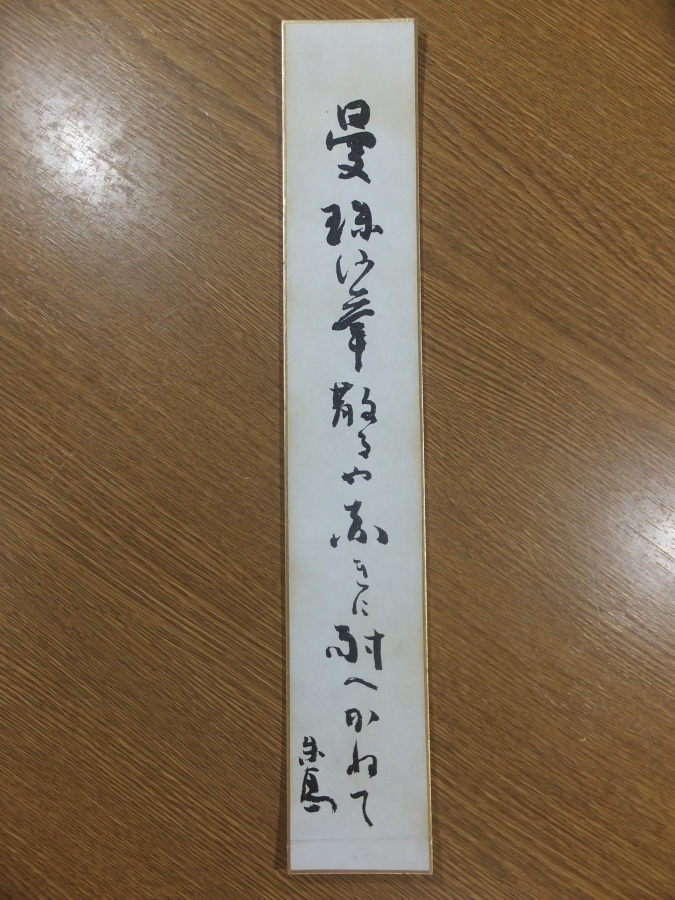 曼珠沙華散るや赤きに耐へかねて
朱鳥